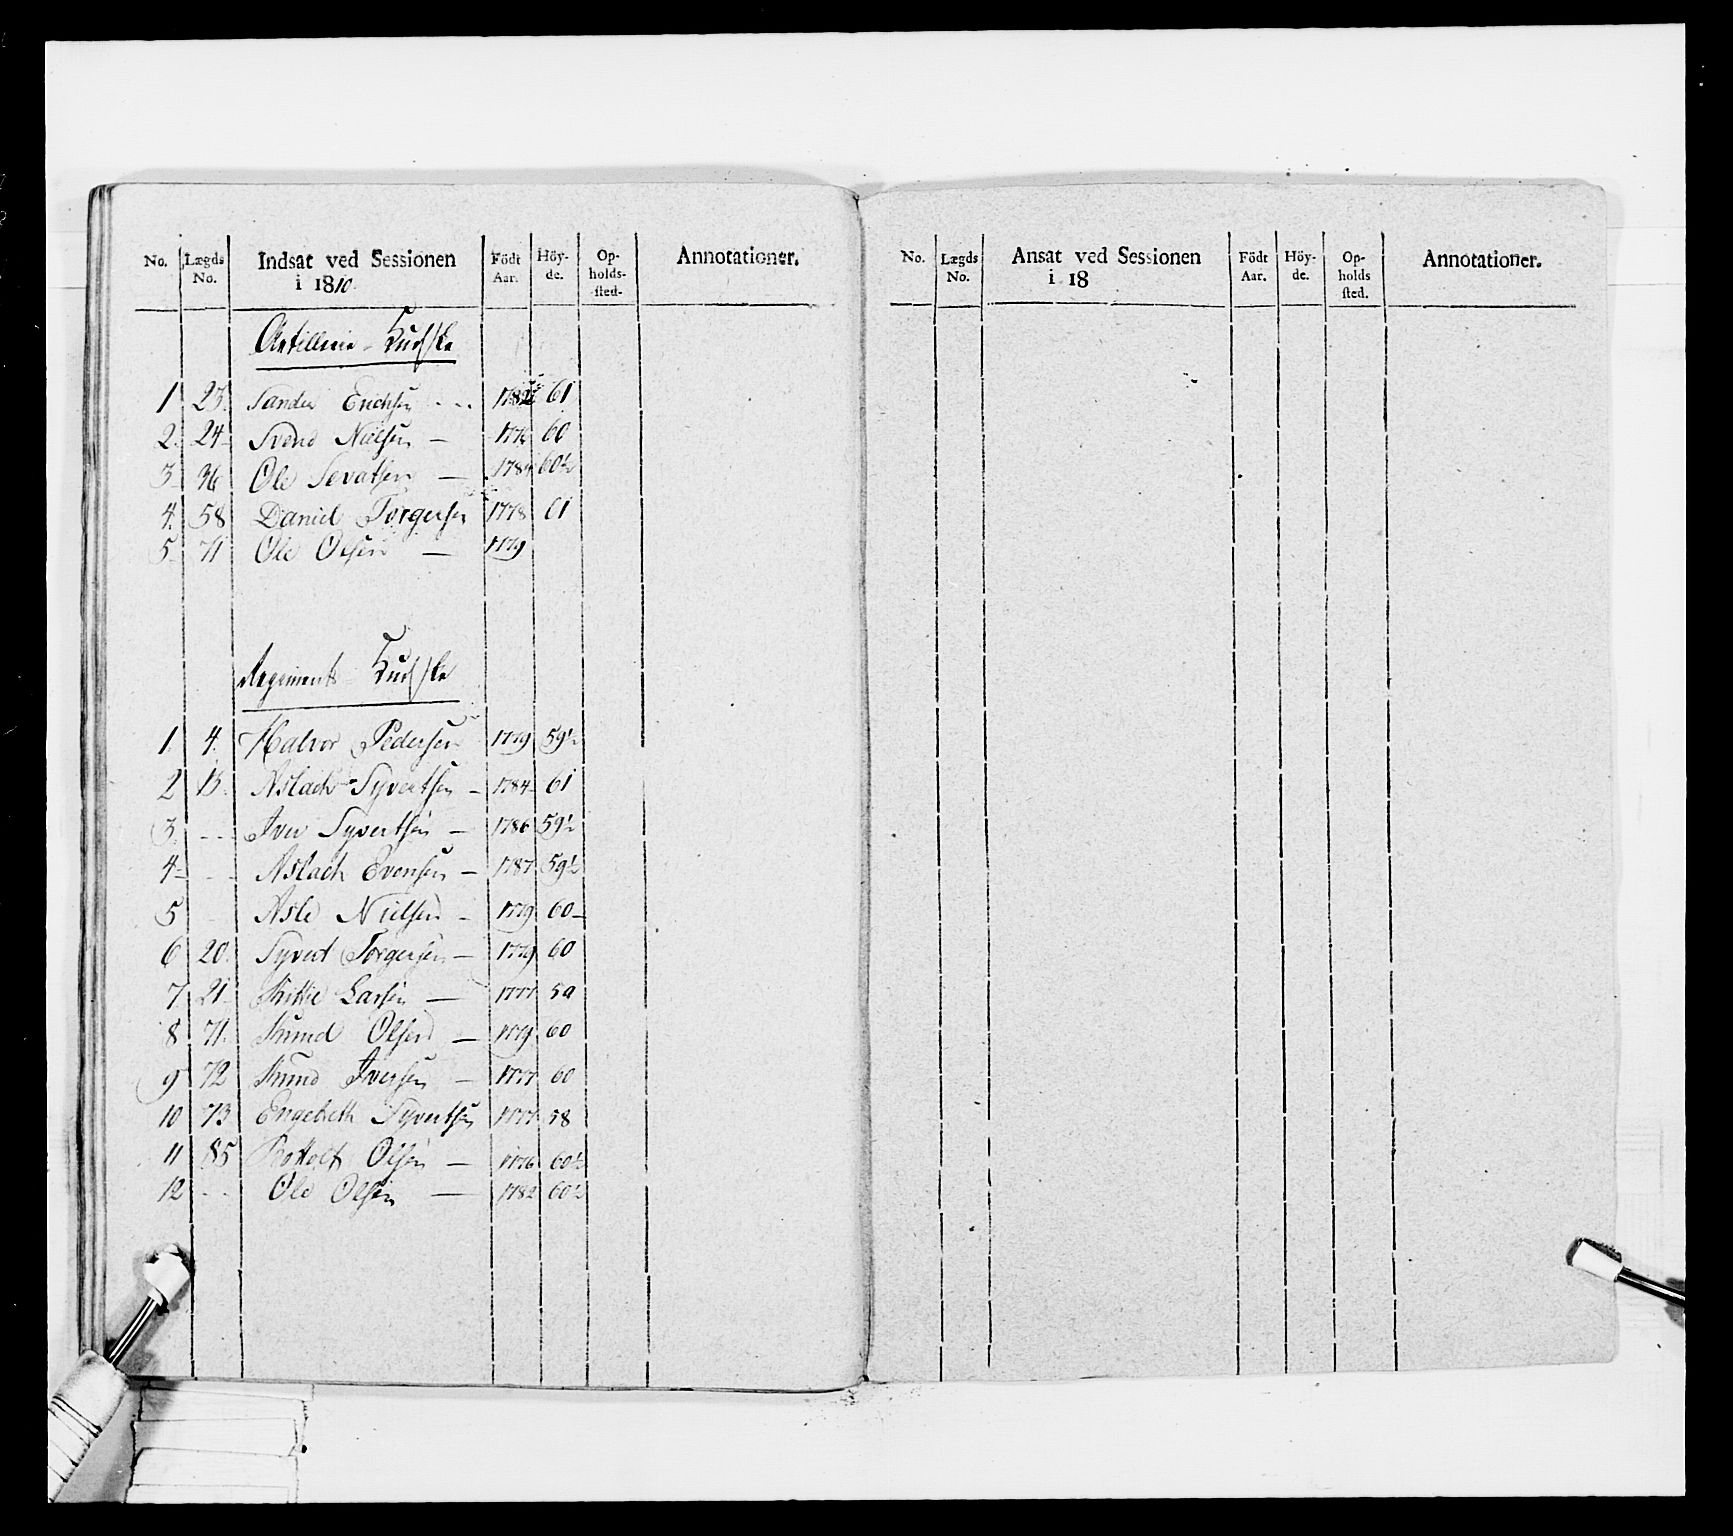 No. Lægds No. Indsat ved Sessionen i 1810. Födt Aar. Höyde. Opholdssted. Annotationer.
Artillerie Kudske
1 23. Sander Erichsen 61
2. 24 Svend Nielsen 1776 60
3 36 Ole Sevatsen 1784 60½
4. 58 Daniel Torgersen 1778 61
5 71 Ole Olsen 1779
Regiments Kudske
1. 4. Halvor Pedersen 1779 59½
2 13. Aslach Syvertsen 1784 61
3. -- Iver Syvertsen 1786 59½
4 -- Aslach Evensen 1787 59½
5 - Asle Nielsen 1779 60
6 20. Syvert Torgersen 1779 60
7 21 Kittil Larsen 1777 59
8 71. Knud Olsen 1779 60
9 72 Knud Iversen 1777 60
10 73 Engebreth Syvertsen 1777 58
11 85 Olsen 1776 60½
12 -- Ole Olsen 1782 60½
No. Lægds No. Ansat ved Sessionen i 18 Födt Aar. Höyde. Opholdssted. Annotationer.